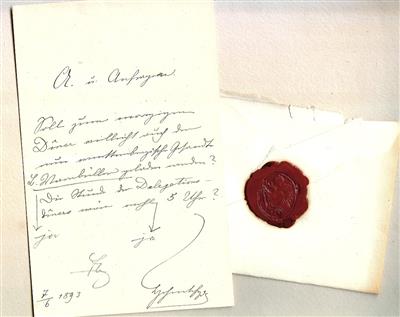 A. u. Anfrage.
Soll zum morgigen
Diner vielleicht auch der
neue württembergische Gesandte
geladen werden?
Die Stunde des Delegations-
diners wäre wohl 5 Uhr?
ja
ja
7/6 1893